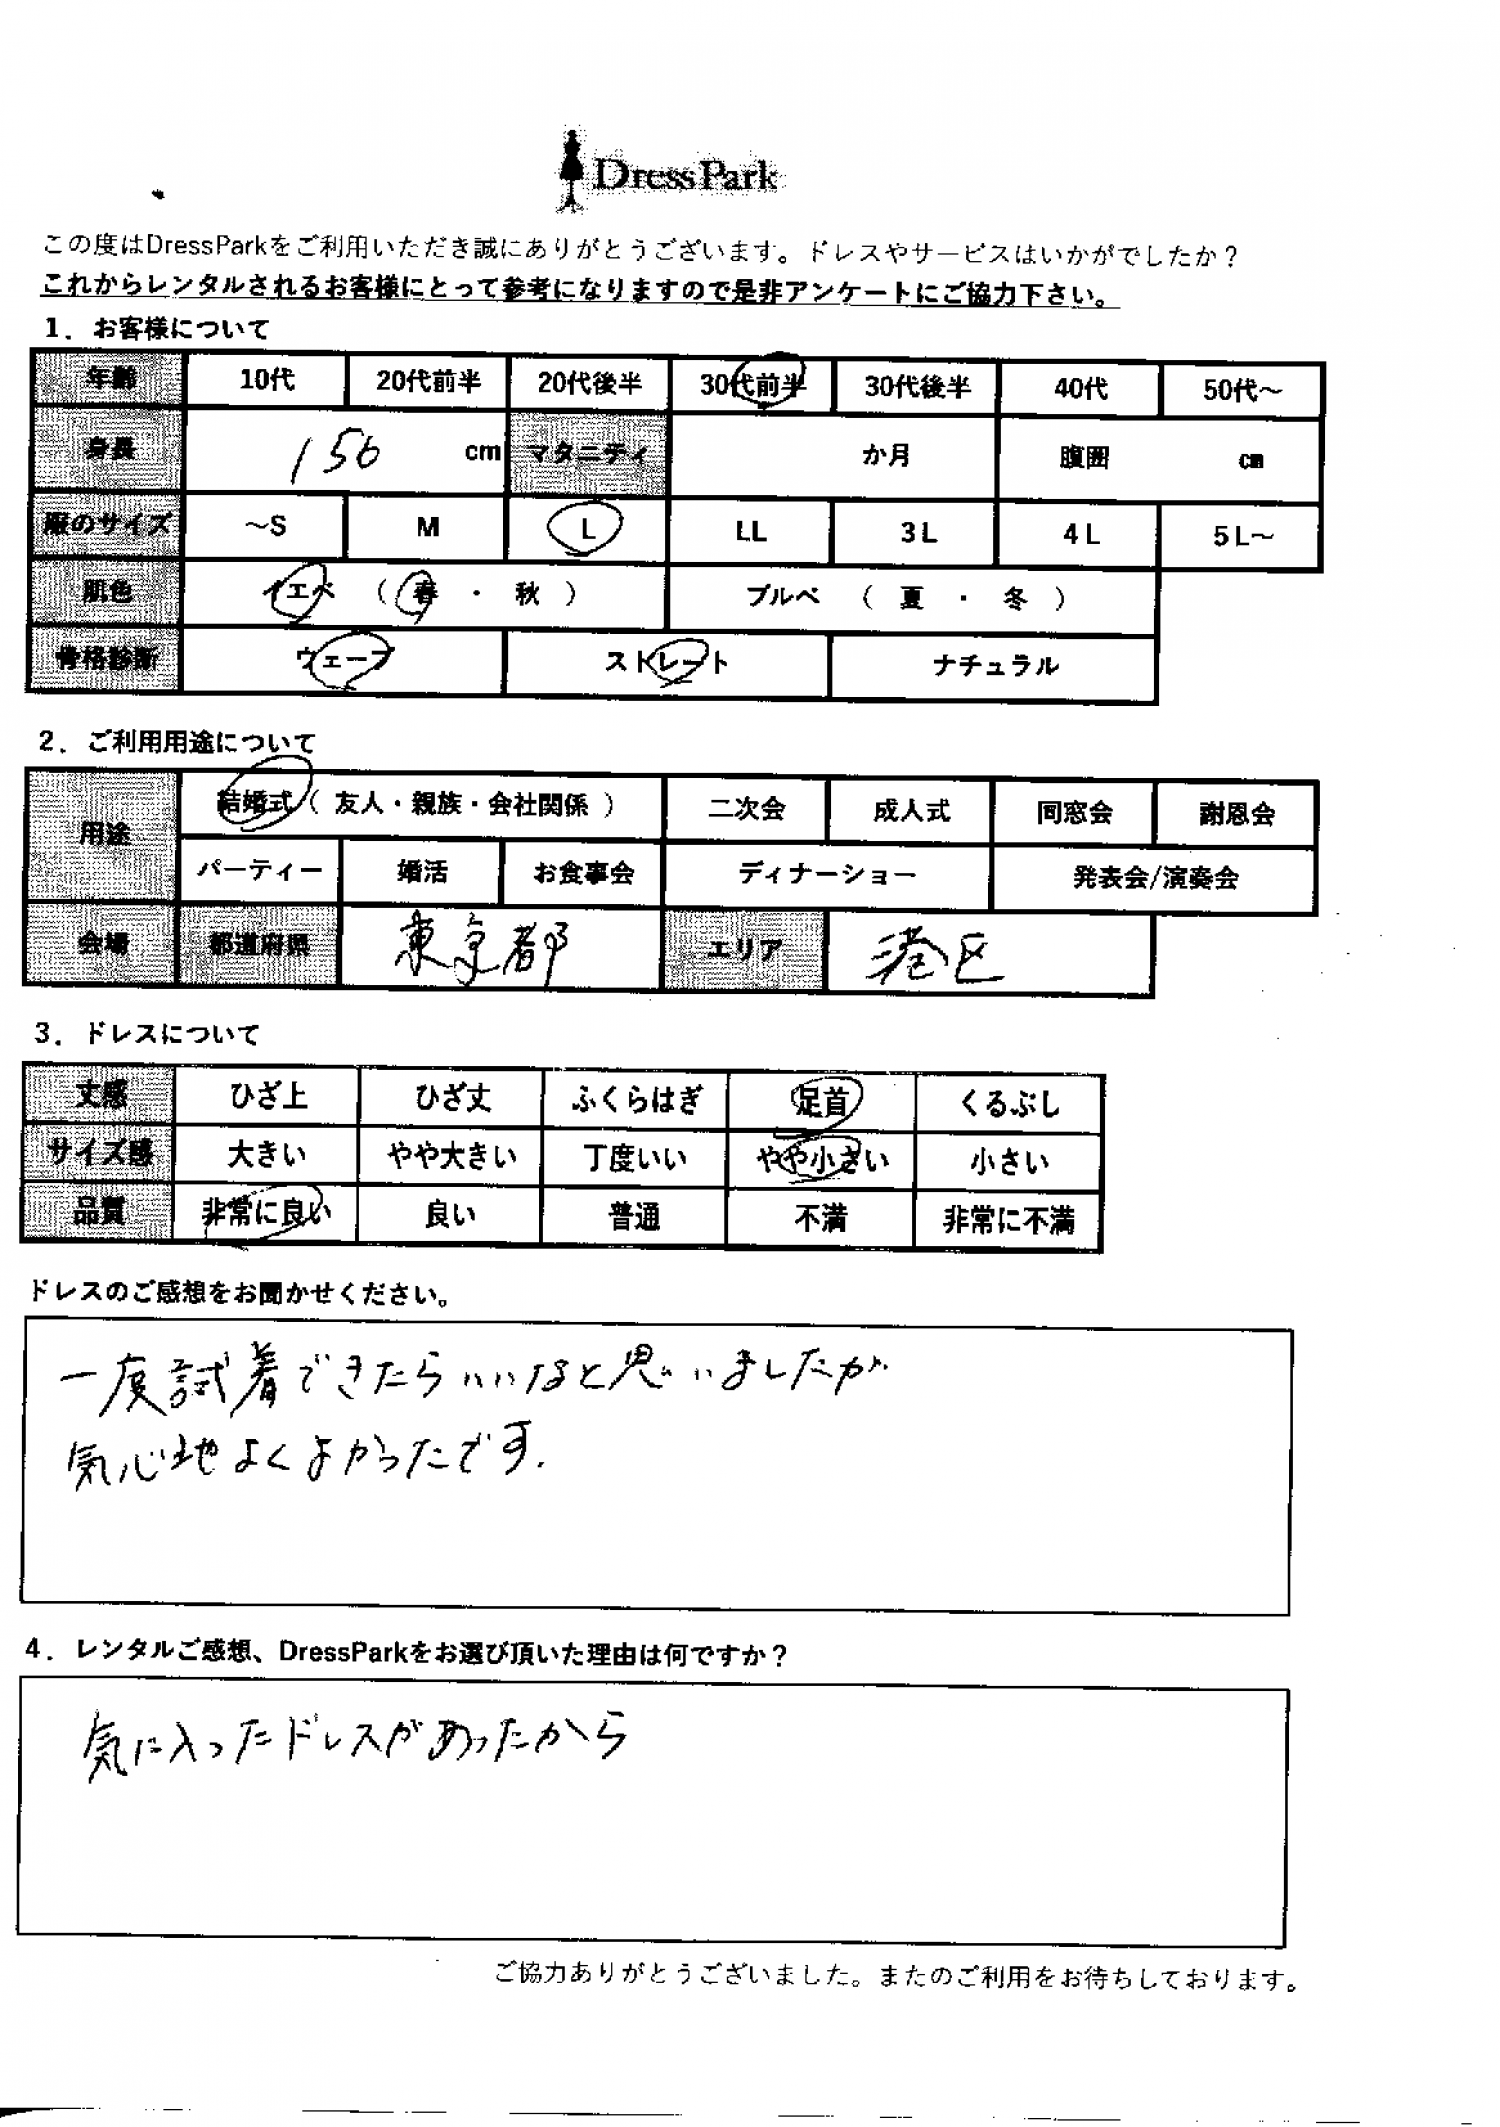 DressPark
この度はDressParkをご利用いただき誠にありがとうございます。ドレスやサービスはいかがでしたか？
これからレンタルされるお客様にとって参考になりますので是非アンケートにご協力下さい。
1．お客様について
年齢 10代 20代前半 20代後半 30代前半 30代後半 40代 50代～
身長 156 cm マタニティ か月 腹囲 cm
服のサイズ ～S M L LL 3L 4L 5L～
肌色 イエベ （ 春 ・ 秋 ） ブルベ （ 夏 ・ 冬 ）
骨格診断 ウェーブ ストレート ナチュラル
2．ご利用用途について
用途 結婚式（ 友人・親族・会社関係 ） 二次会 成人式 同窓会 謝恩会
パーティー 婚活 お食事会 ディナーショー 発表会/演奏会
会場 都道府県 東京都 エリア 港区
3．ドレスについて
丈感 ひざ上 ひざ丈 ふくらはぎ 足首 くるぶし
サイズ感 大きい やや大きい 丁度いい やや小さい 小さい
品質 非常に良い 良い 普通 不満 非常に不満
ドレスのご感想をお聞かせください。
一度試着できたらいいなと思いましたが
気心地よくよかったです.
4．レンタルご感想、DressParkをお選び頂いた理由は何ですか？
気に入ったドレスがあったから
ご協力ありがとうございました。またのご利用をお待ちしております。